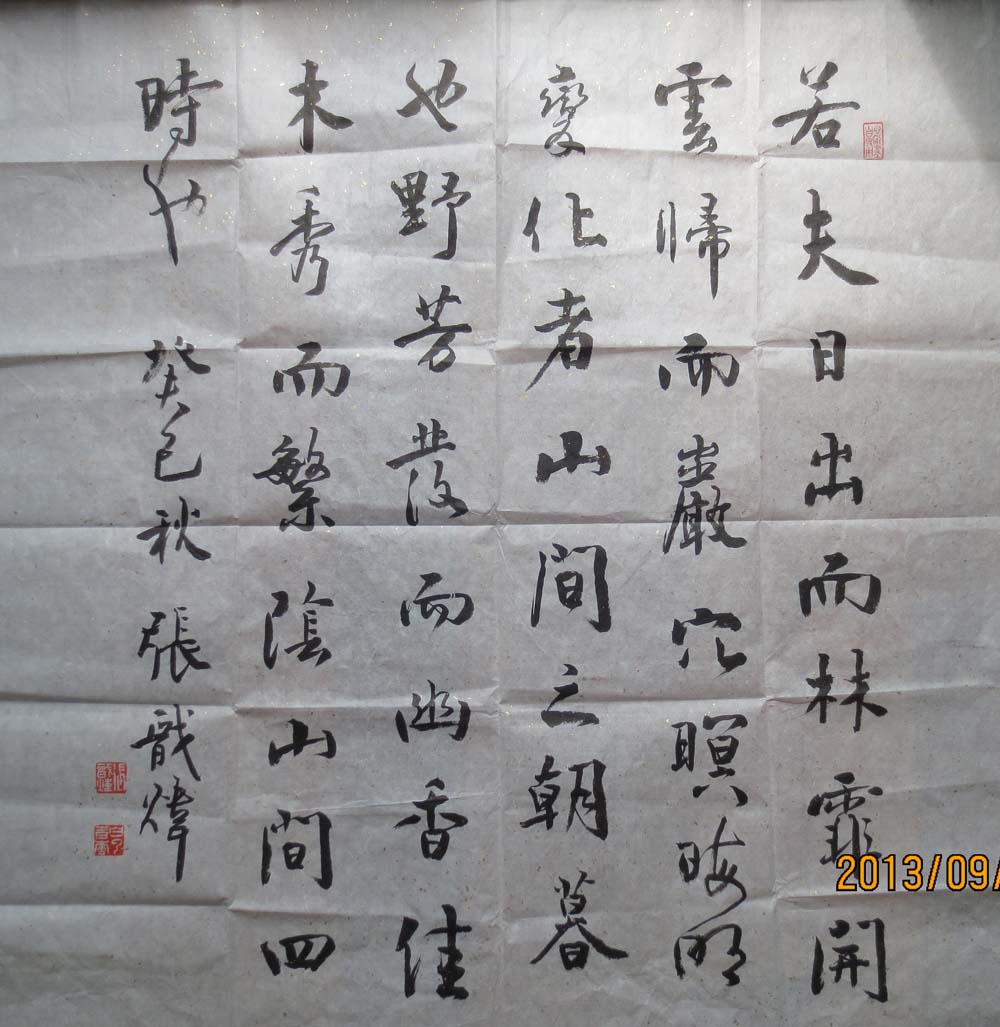 若夫日出而林霏開
雲歸而巖穴暝晦明
變化者山間之朝暮
也野芳發而幽香佳
木秀而繁陰山間四
時也 癸巳秋 張戩煒
2013/09/